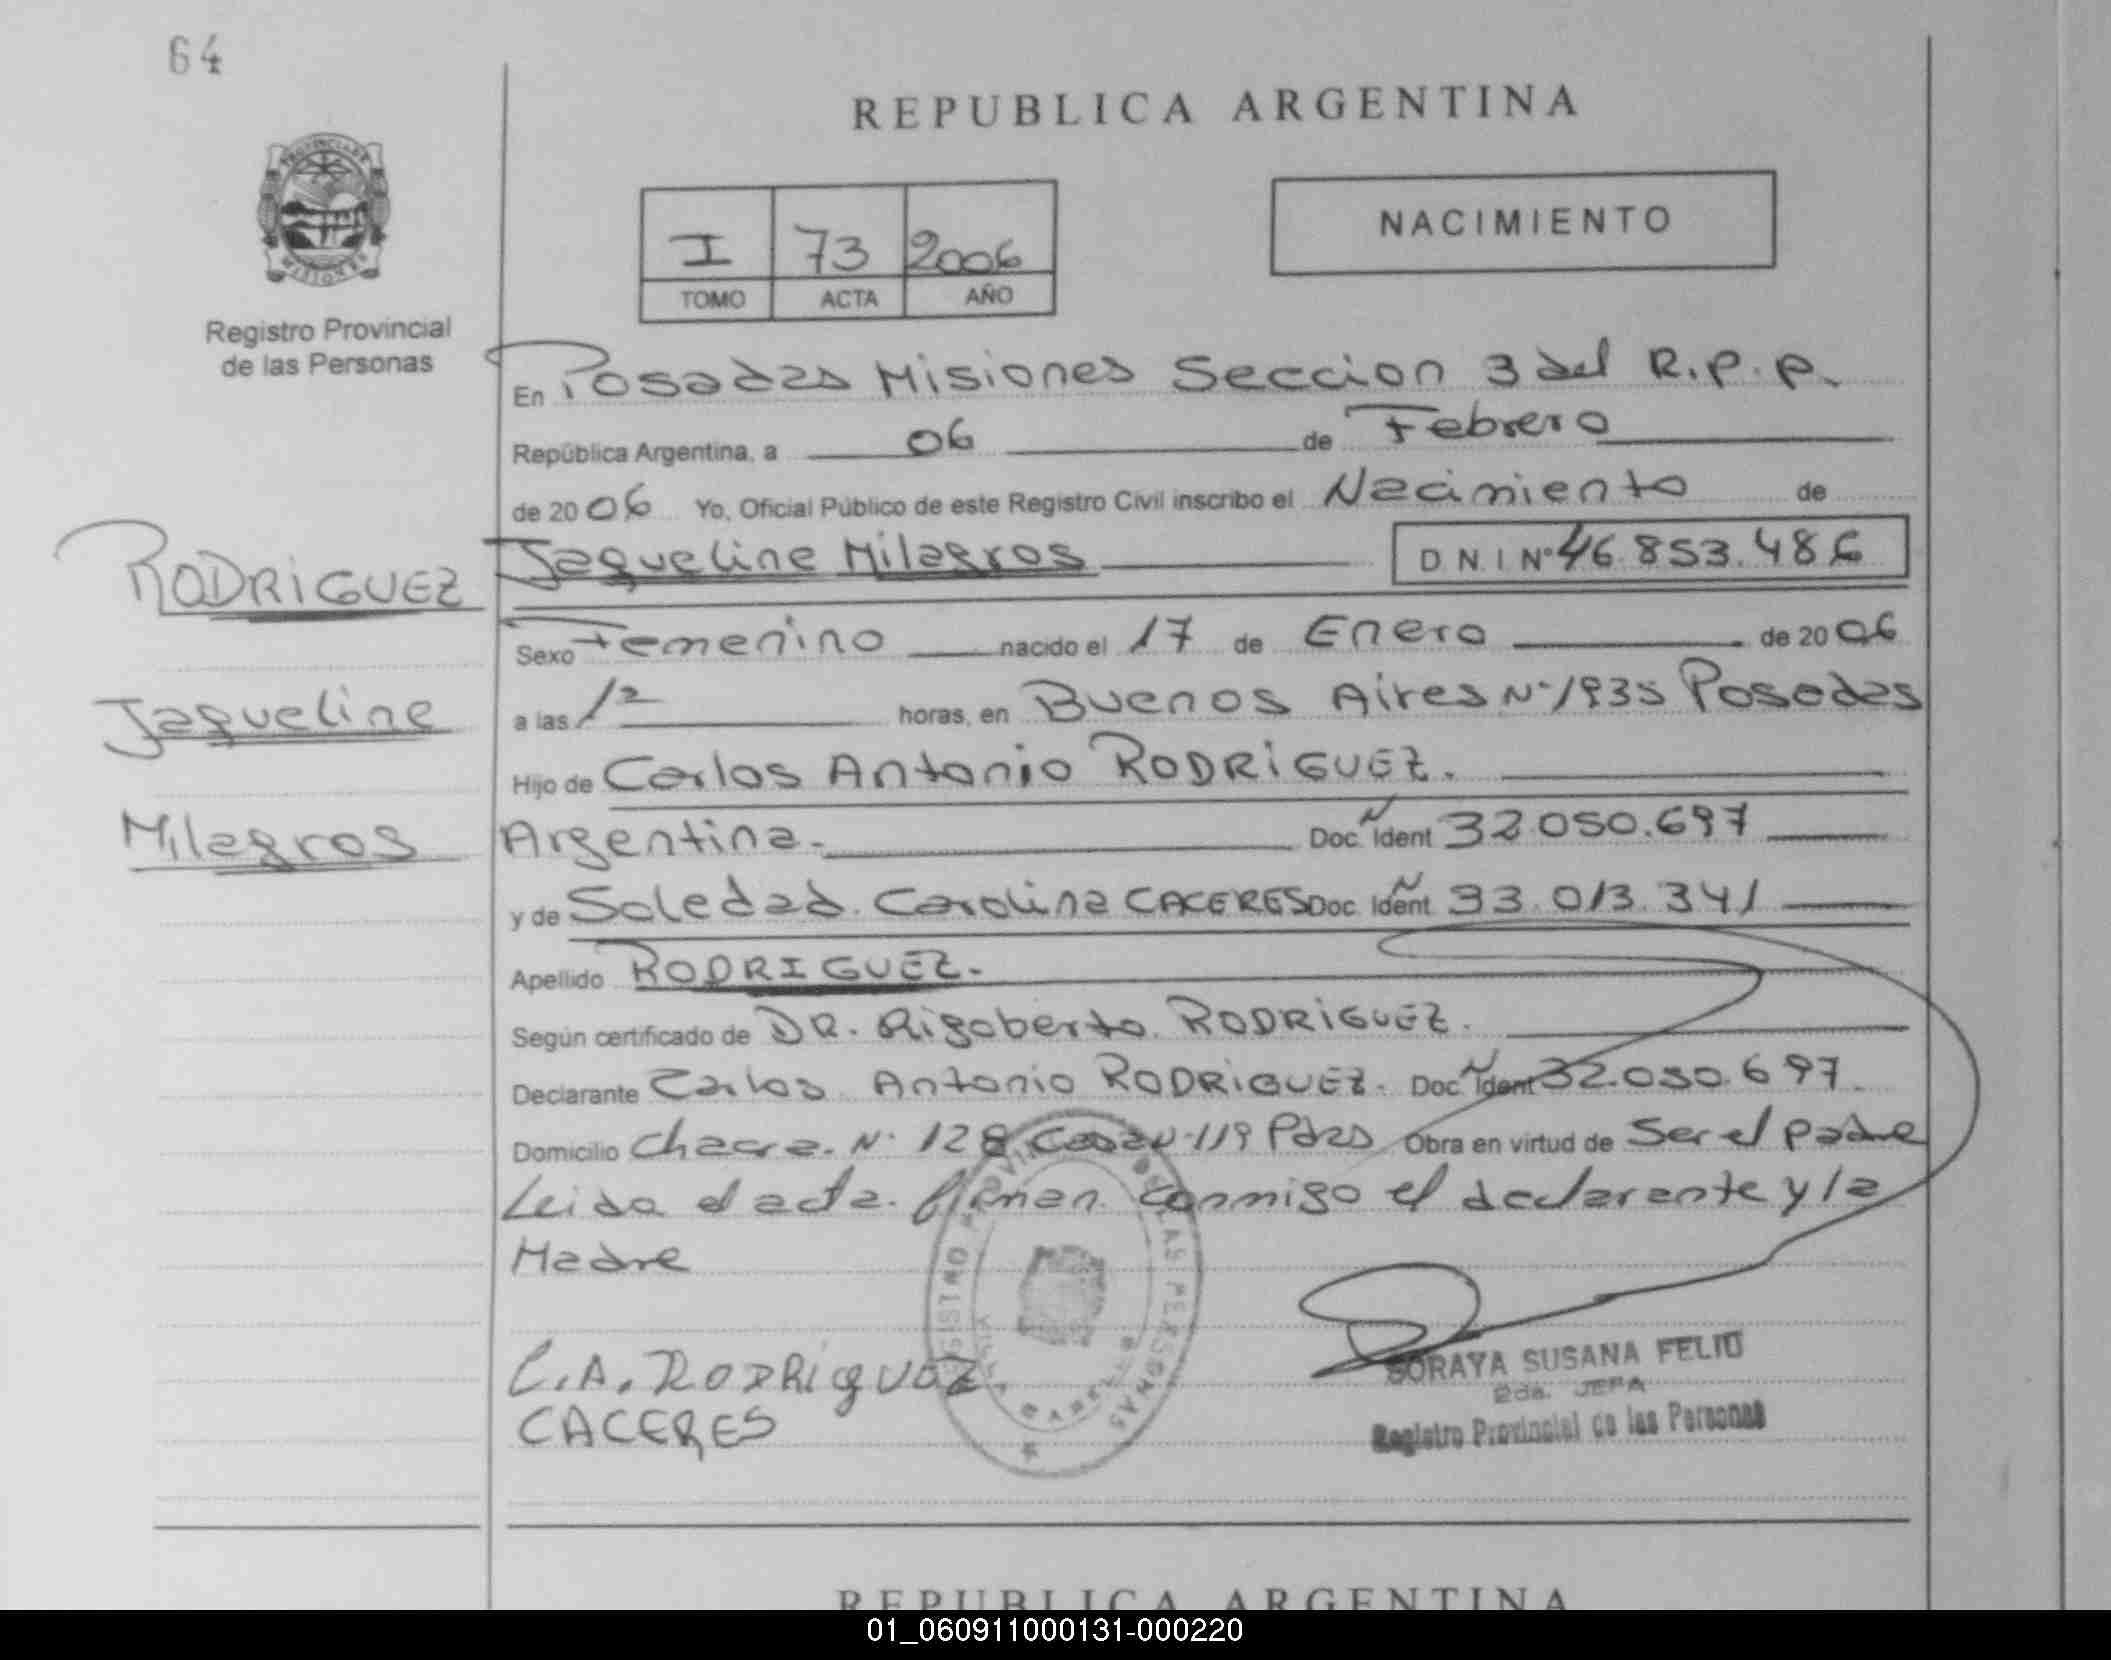 64
REPUBLICA ARGENTINA
PROVINCIA DE
MISIONES
I 73 2006
TOMO ACTA AÑO
NACIMIENTO
Registro Provincial
de las Personas
En Posadas Misiones Seccion 3 del R.P.P.
República Argentina, a 06 de Febrero
de 2006 Yo, Oficial Público de este Registro Civil inscribo el Nacimiento de
RODRIGUEZ
Jaqueline Milagros D.N.I Nº 46.853.486
Sexo Femenino nacido el 17 de Enero de 2006
Jaqueline
a las 12 horas, en Buenos Aires Nº 1935 Posadas
Hijo de Carlos Antonio RODRIGUEZ.
Milagros
Argentina.- Doc. N Ident 32.050.697
y de Soledad Carolina CACERES Doc. N Ident 33.013.341
Apellido RODRIGUEZ.-
Según certificado de DR. Rigoberto RODRIGUEZ.
Declarante Carlos Antonio RODRIGUEZ. Doc. N Ident 32.050.697.
Domicilio Chacra. Nº 128 Casa Nº 119 Pdas Obra en virtud de Ser el padre
Leida el acta. firman conmigo el declarante y la
Madre
C.A. RODRiguez
CACERES
SORAYA SUSANA FELIU
2da. JEFA
Registro Provincial de las Personas
REPUBLICA ARGENTINA
01_060911000131-000220